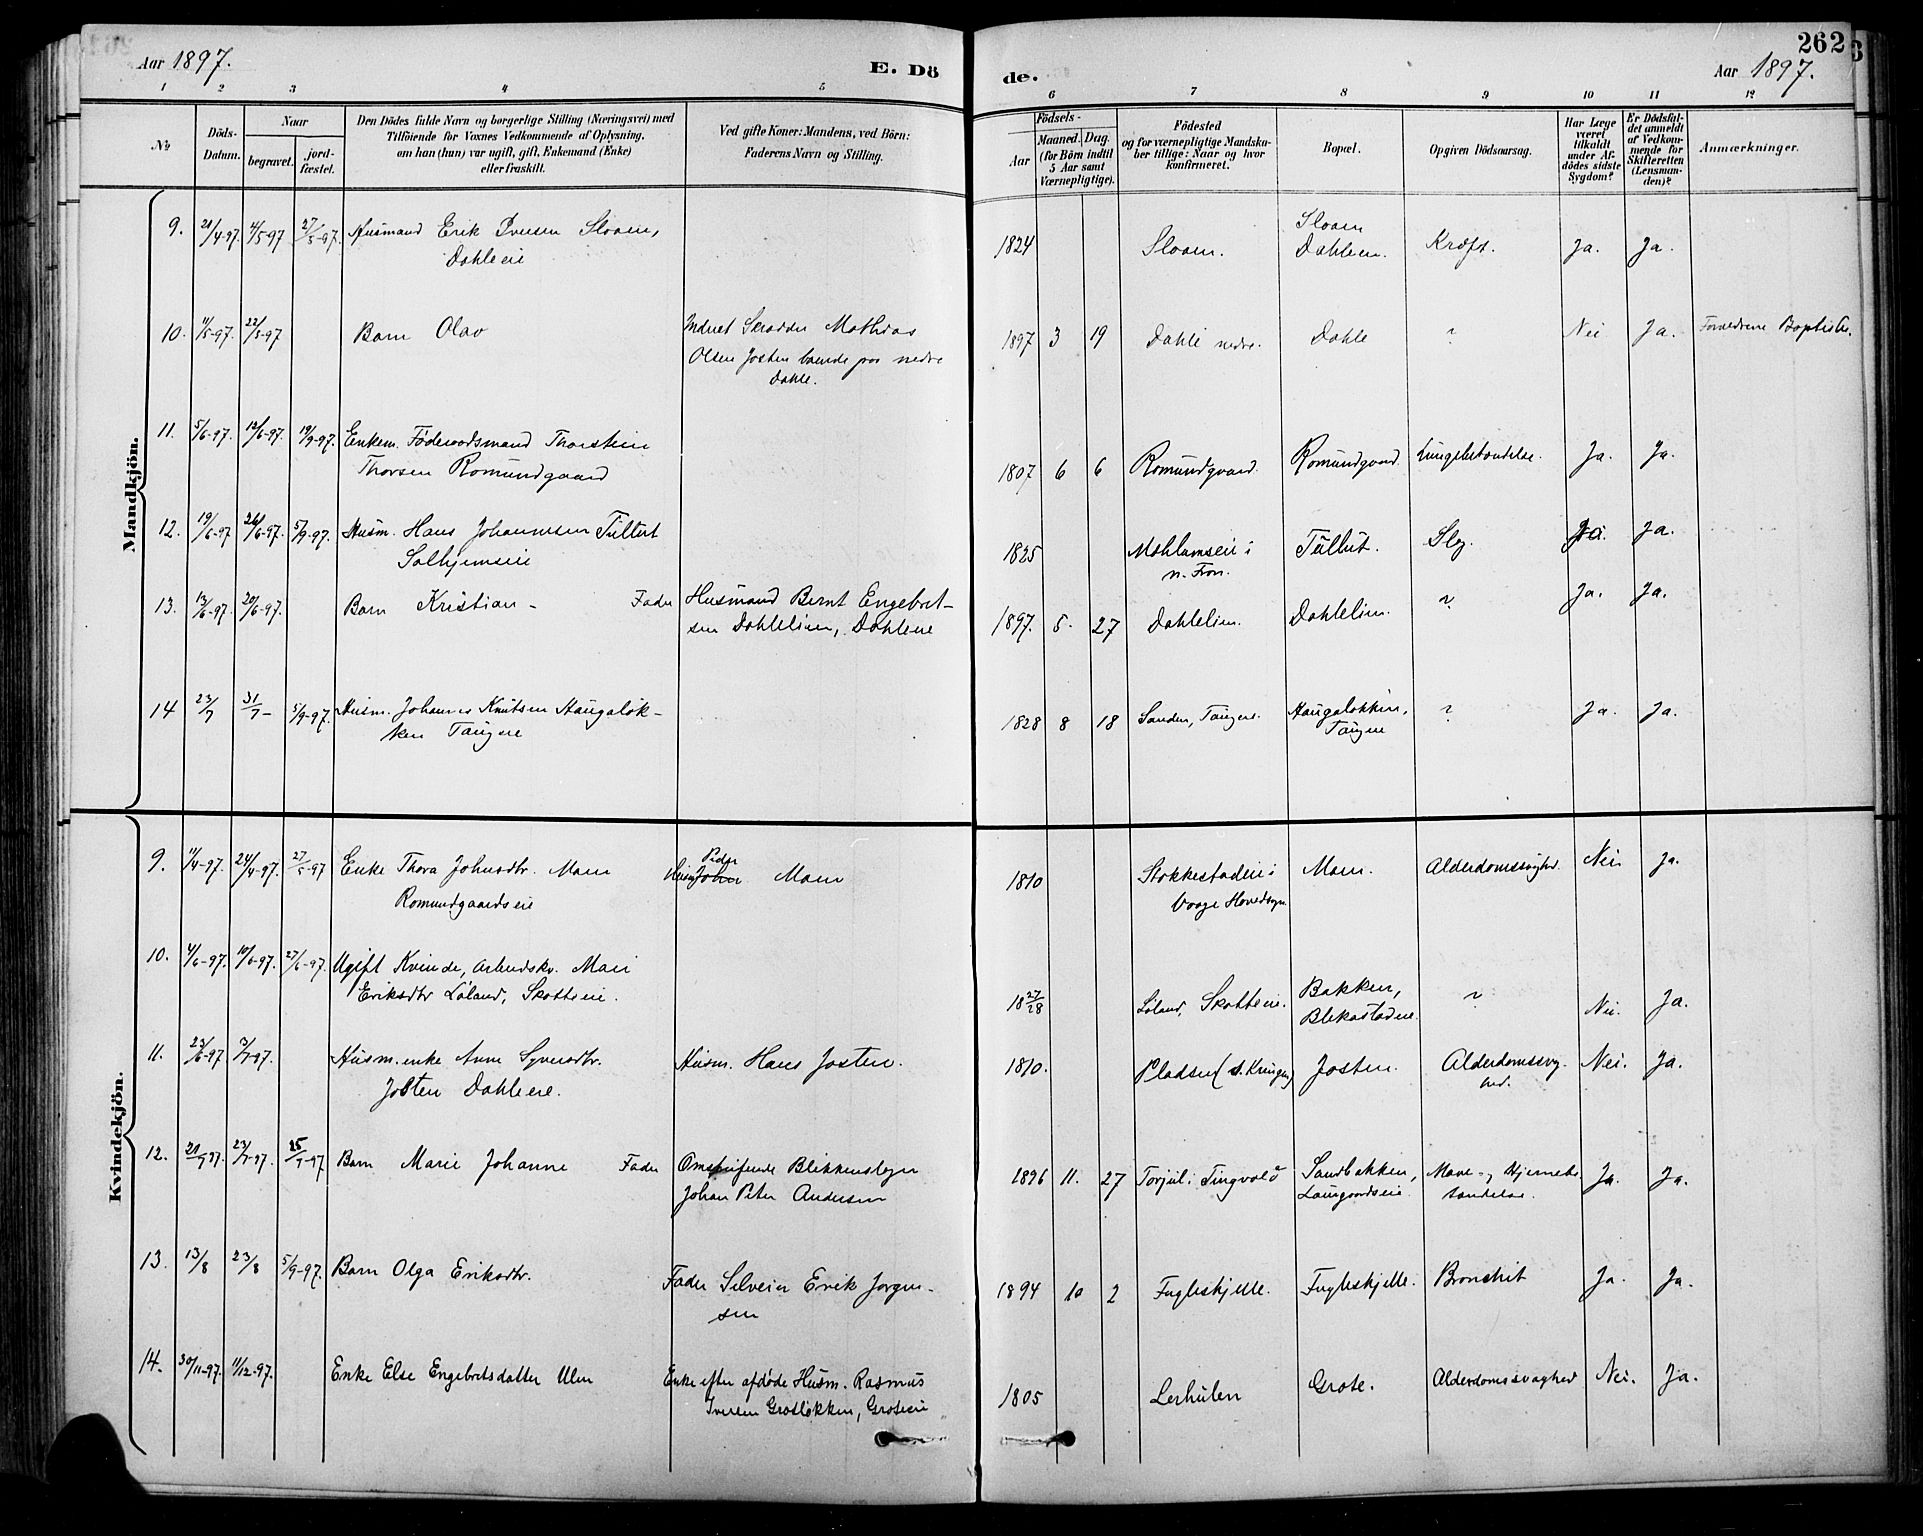 Aar 1897.
E. Dö
de.
Aar 1897.
262
1 2 3 4 5 6 7 8 9 10 11 12
No
Döds-Datum.
Naar
begravet.
jord-fæstet.
Den Dödes fulde Navn og borgerlige Stilling (Næringsvei) med
Tilföiende for Voxnes Vedkommende af Oplysning,
om han (hun) var ugift, gift, Enkemand (Enke)
eller fraskilt.
Ved gifte Koner: Mandens, ved Börn:
Faderens Navn og Stilling.
Födsels-
Aar
Maaned. Dag.
(for Börn indtil
5 Aar samt
Værnepligtige).
Födested
og for værnepligtige Mandska-
ber tillige: Naar og hvor
konfirmeret.
Bopæl.
Opgiven Dödsaarsag.
Har Læge
været
tilkaldt
under Af-
dödes sidste
Sygdom?
Er Dödsfal-
det anmeldt
af Vedkom-
mende for
Skifteretten
(Lensman-
den)?
Anmærkninger.
Mandkjön.
9. 4/5-97 27/5-97. Husmand Erik Iversen Sloaen, 1824 Sloaen. Sloaen Kræft. Ja. Ja.
Dahleeie Dahleeie.
10. 11/5-97. 22/5-97 Barn Olav Inderst Skrædder Mathias 1897 3 19 Dahle nedre. Dahle ? Nei Ja. Forældrene Baptister.
Olsen Josten boende paa nedre
Dahle.
11. 5/6-97. 12/6-97. 19/9-97. Enkem. Föderaadsmand Thorstein 1807 6 6 Romundgaard. Romundgaard. Lungebetændelse. Ja. Ja.
Thorsen Romundgaard
12. 19/6-97 26/6-97. 5/9-97. Husm. Hans Johannesen Tullut 1825 i Tullut. Slag. Ja.
Solhjemseie n. Fron.
13. 13/6-97. 20/6-97. Barn Kristian - Fader Husmand Bernt Engebret- 1897. 5. 27 Dahlelien. Dahlelien. ? Ja. Ja.
sen Dahlelien, Dahleeie
14 23/7 31/7- 5/9-97. Husm. Johannes Knutsen Haugaløk- 1828 8 18 Sanden, Taugeie. Haugaløkken, ? Ja. Ja.
ken Taugeie Taugeie
Kvindekjön.
9. 11/4-97. 24/4-97. 27/5-97 Enke Thora Johnsdtr. Moen Husm. John Peder Moen 1810 Stokkestadeie i Moen. Alderdomssvaghed. Nei. Ja.
Romundgaardseie Vaage Hovedsogn.
10. 4/6-97. 10/6-97. 27/6-97. Ugift Kvinde, Arbeidskv. Mari 18 27/28 Løland, Skotteeie. Bakken, ? Nei. Ja.
Eriksdtr Løland, Skotteeie. Blekastadeie.
11. 23/6-97 3/7-97. Husm.enke Anne Syversdtr. Husm. Hans Josten. 1810. Pladsen (s. Kringen) Josten. Alderdomssvag- Nei. Ja.
Josten Dahleeie. hed.
12. 23/7-97. 25/7-97 Barn Marie Johanne Fader Omstreifende Blikkenslager 1896 11. 27 Torjul i Tingvold Sandbakken, Mave- og Hjernebe- Ja. Ja.
Johan Peter Andersen Laurgaardseie. tændelse.
13. 13/8 23/8 5/9-97. Barn Olga Eriksdtr. Fader Selveier Erik Jörgen- 1894 10 2 Fugleskjelle. Fugleskjelle. Bronchit Ja. Ja.
sen
14. 30/11-97. 11/12-97. Enke Else Engebretsdatter Ulen Enke efter afdøde Husm. Rasmus 1805 Lerhulen Grote. Alderdomssvaghed Nei. Ja.
Iversen Grotløkken, Groteeie